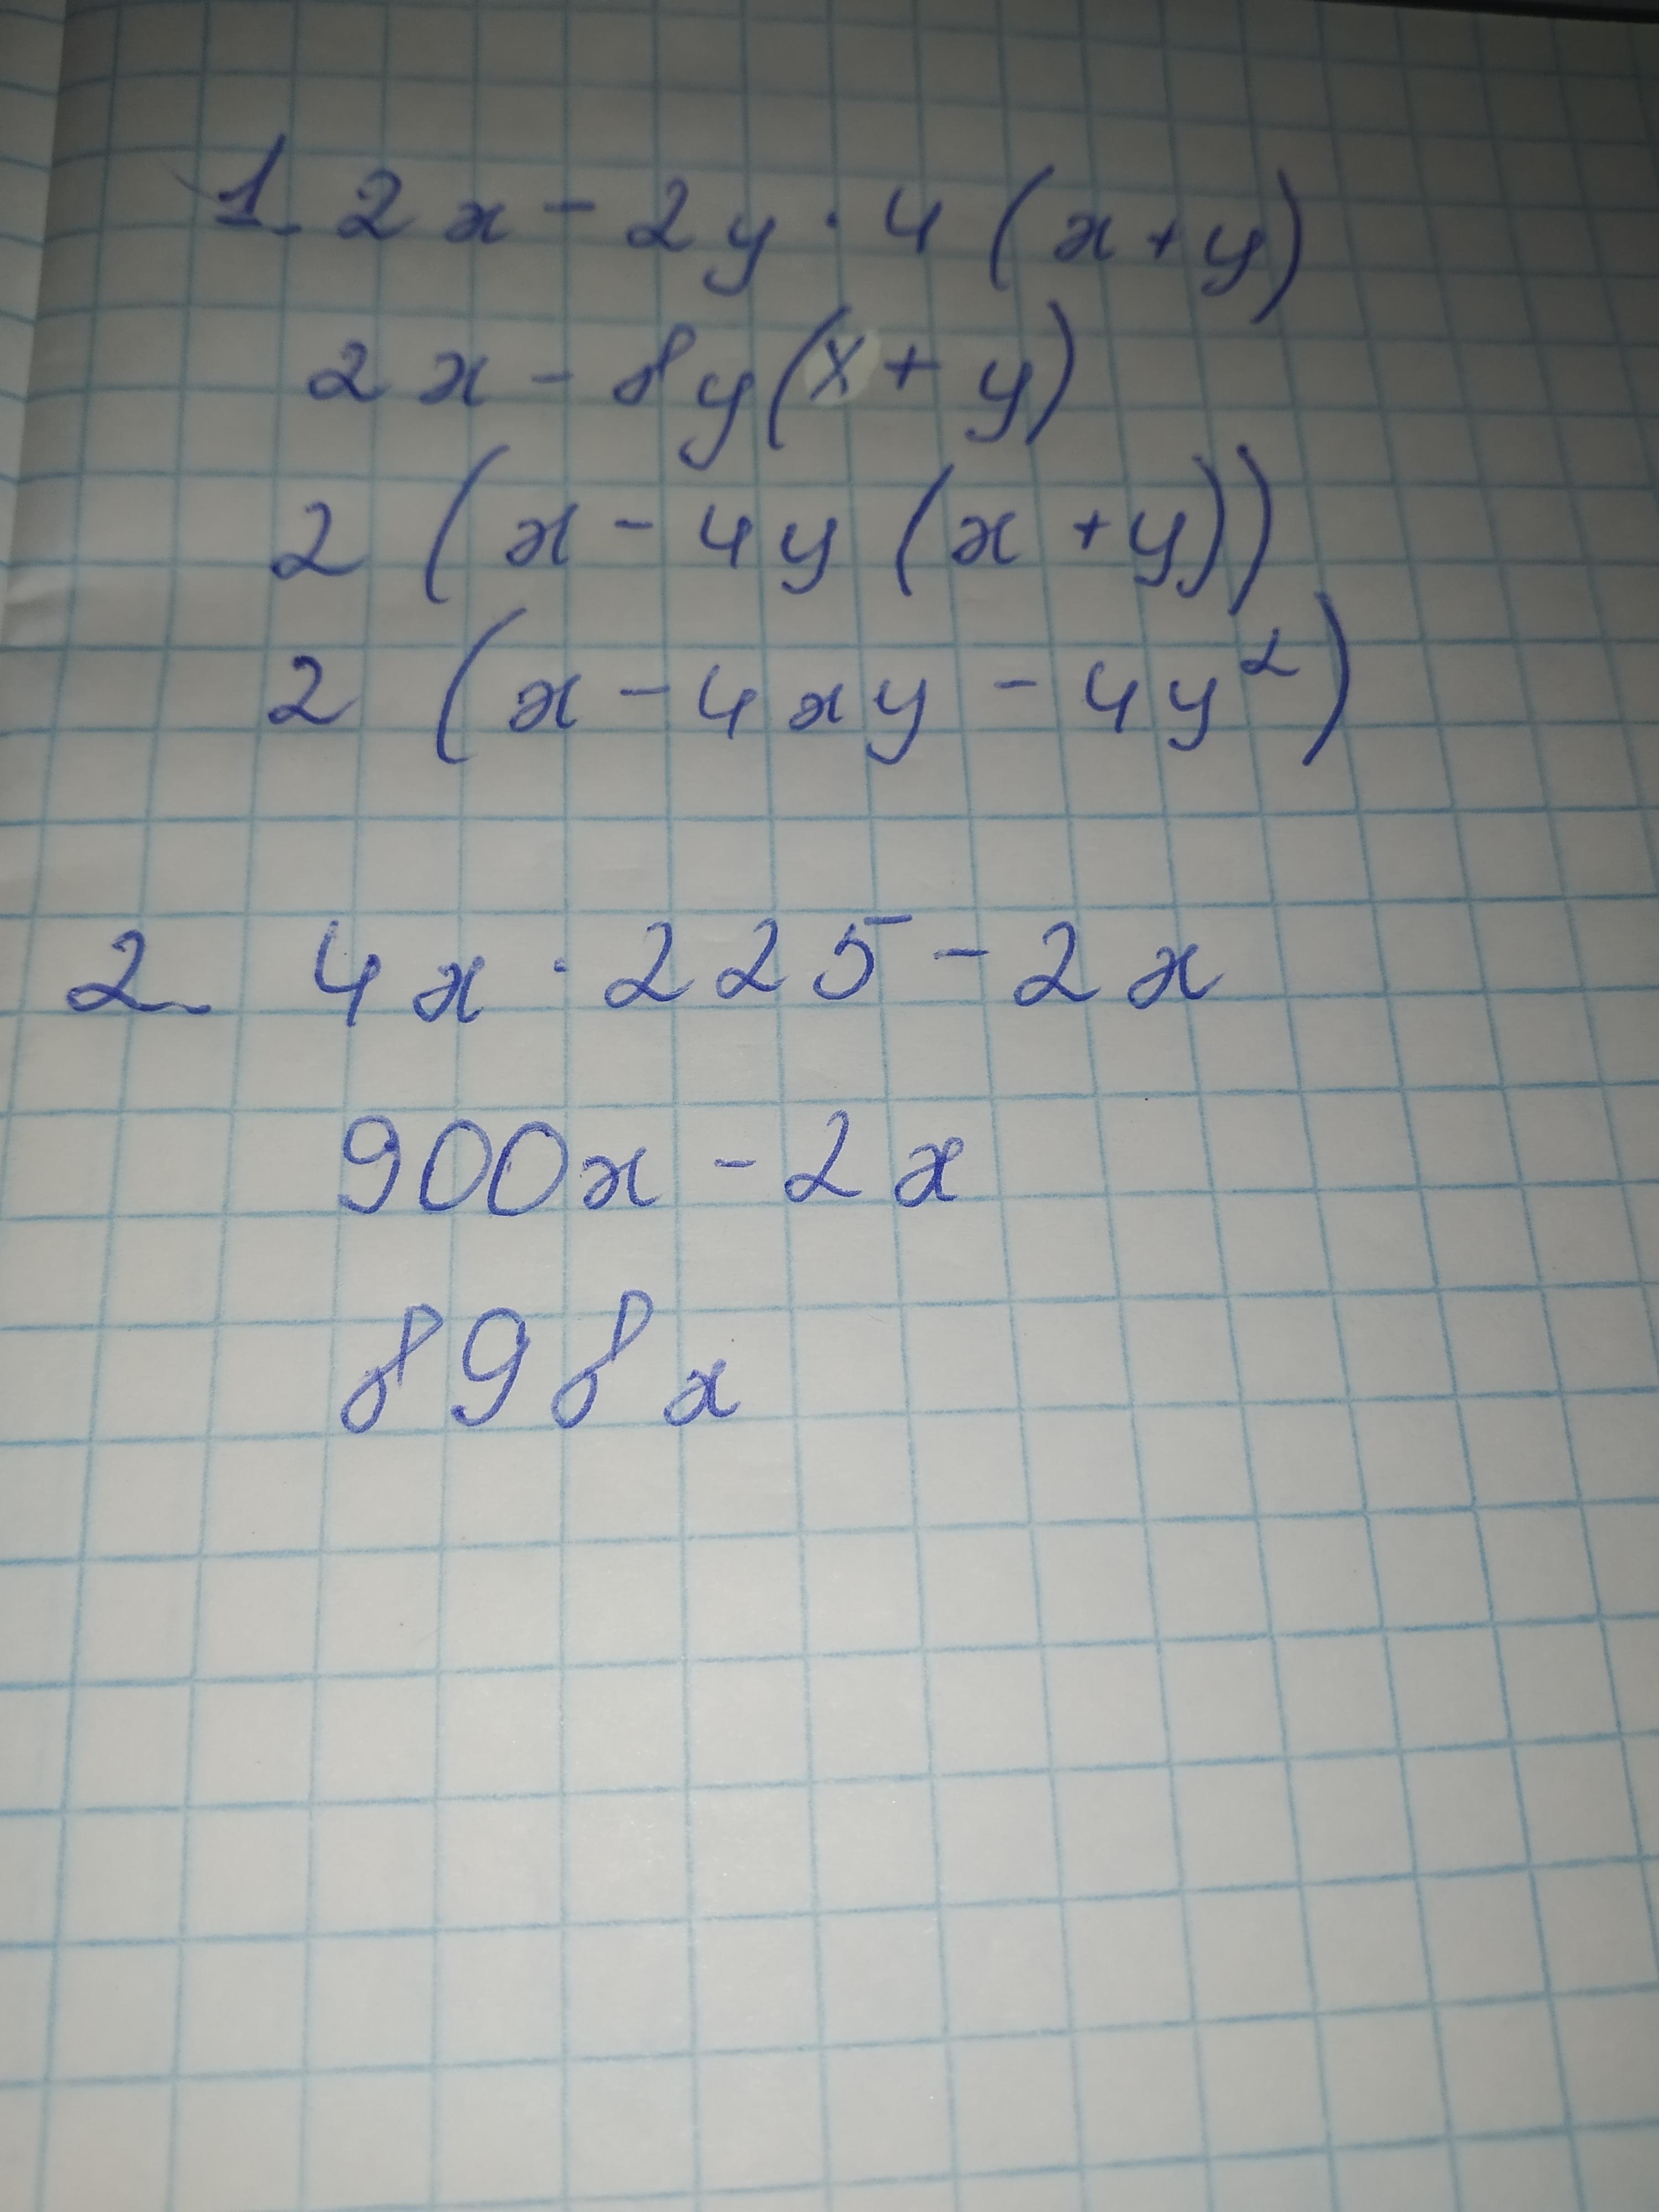 1. 2x - 2y · 4 (x + y)
2x - 8y (x + y)
2 (x - 4y (x + y))
2 (x - 4xy - 4y²)
2. 4x · 225 - 2x
900x - 2x
898x